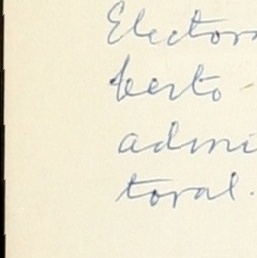 Elector
berto -
admi
toral.